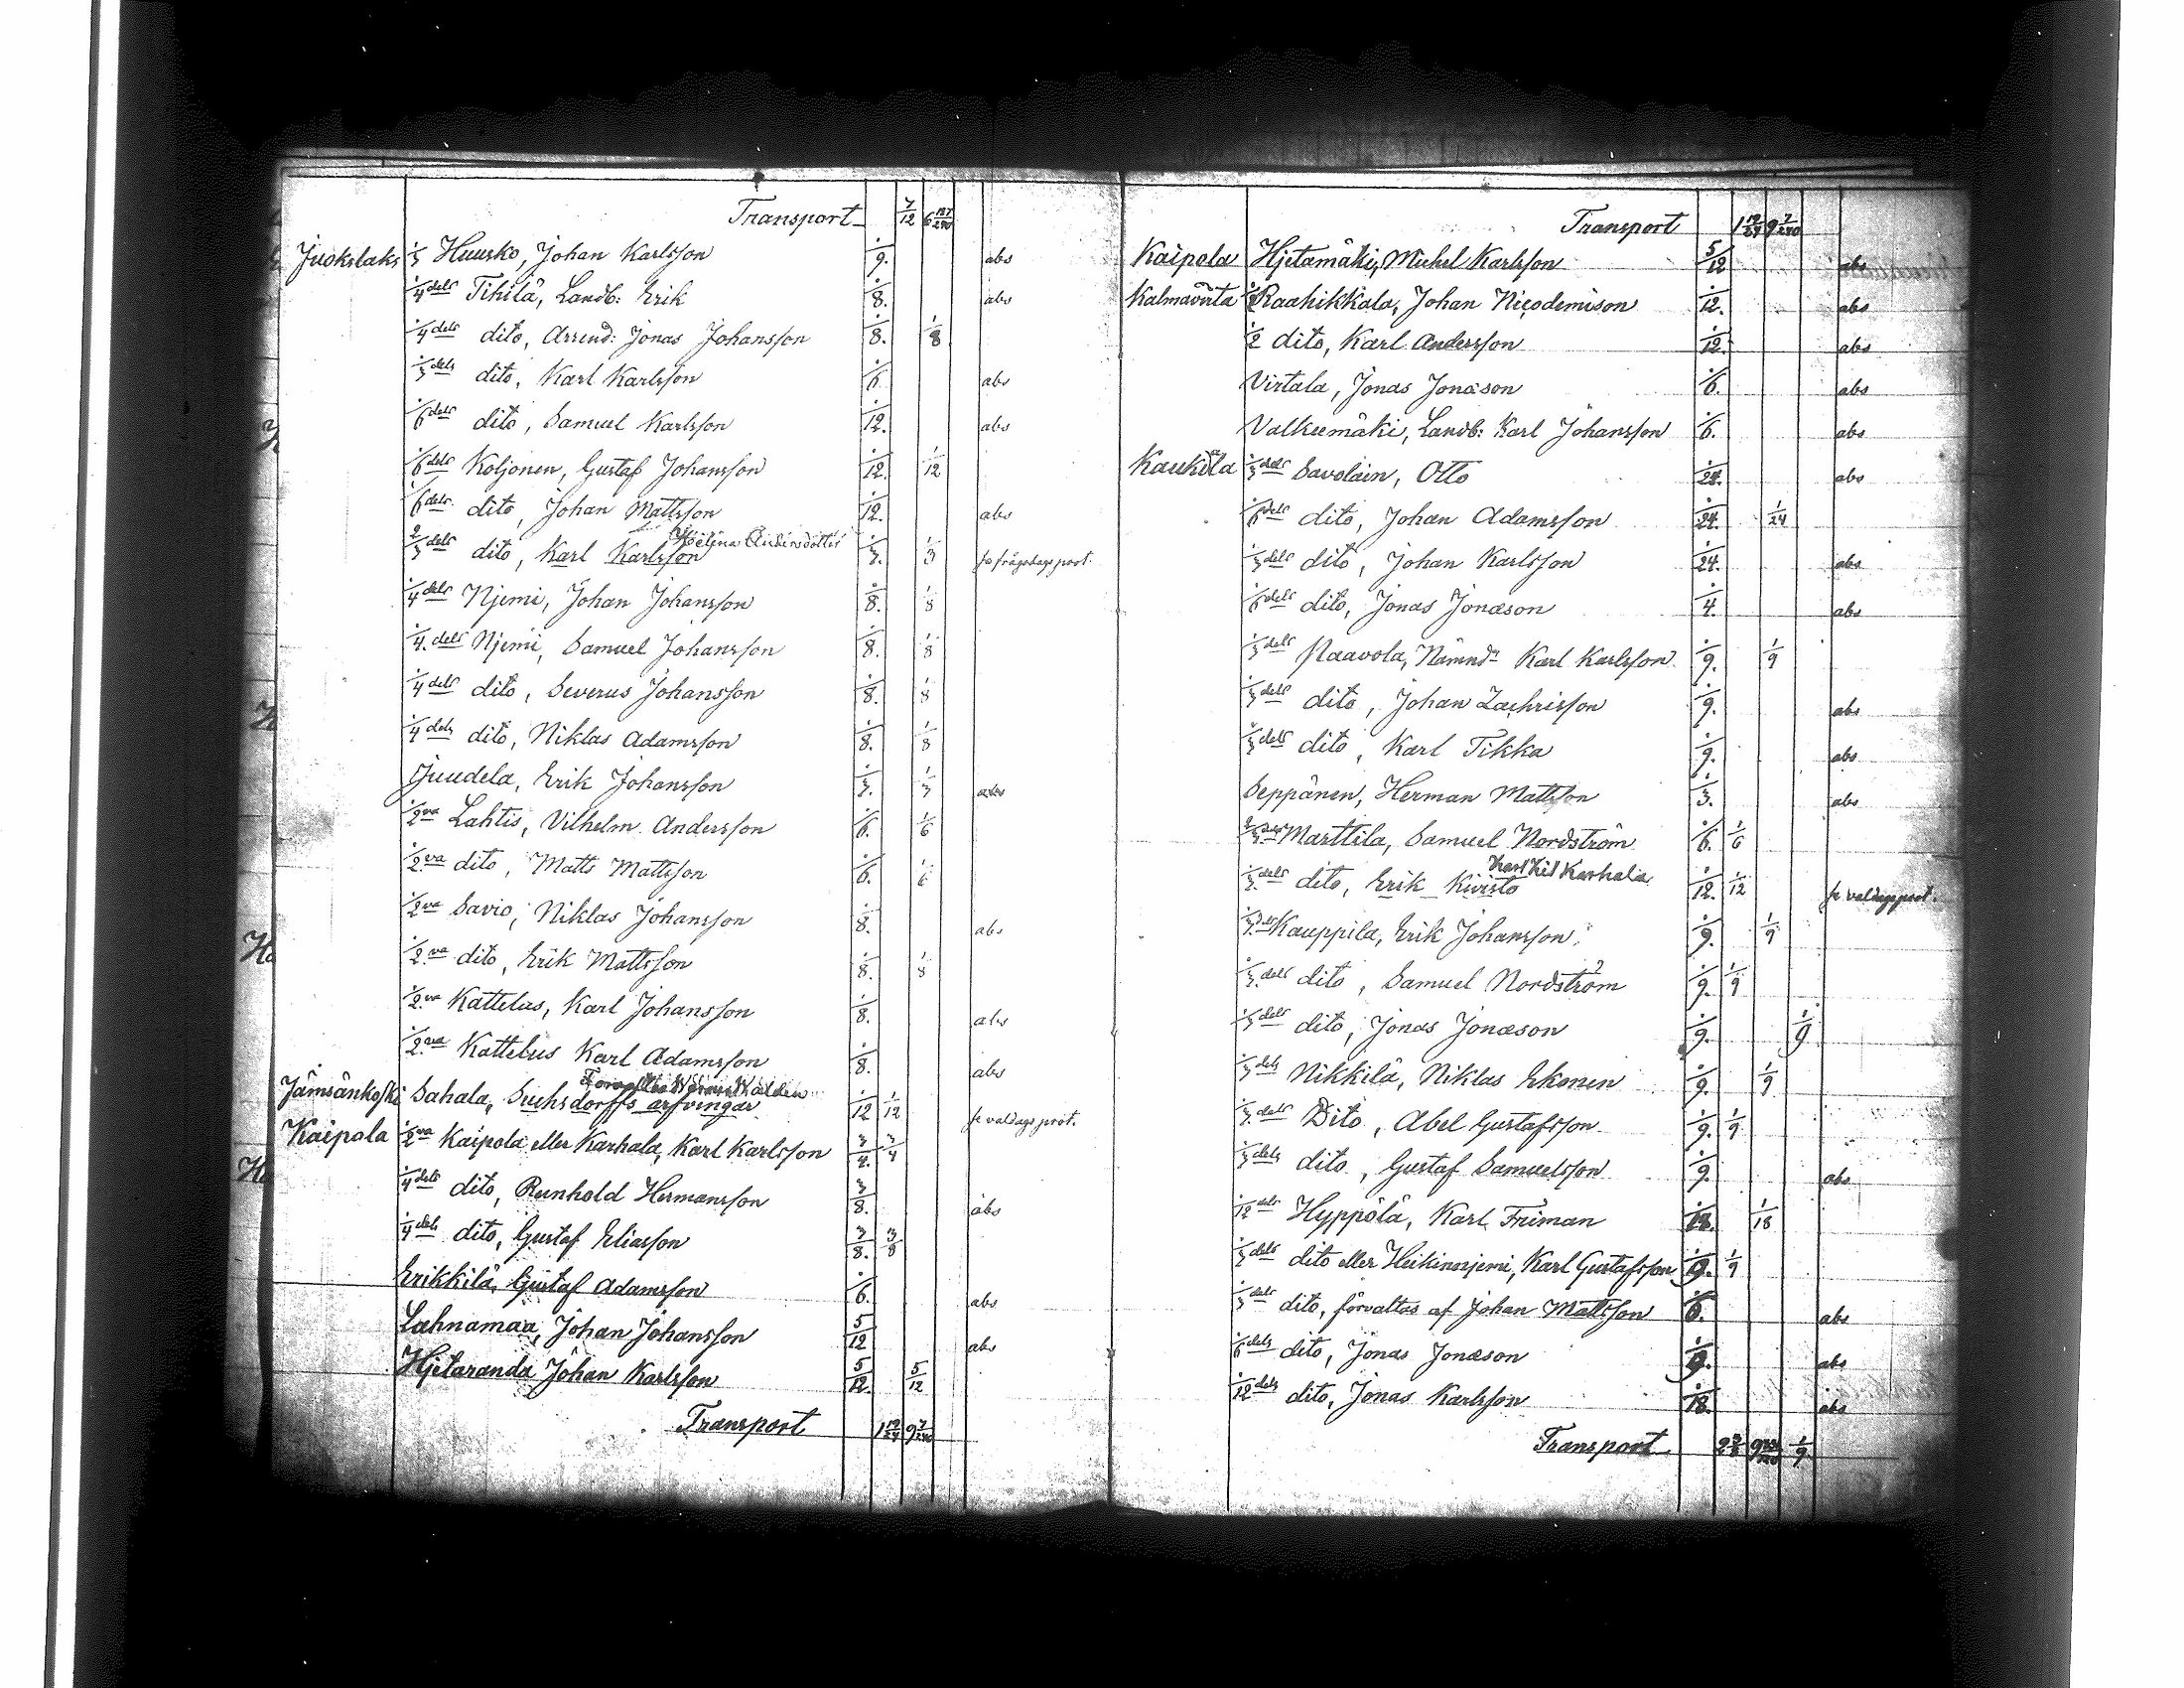 Transport 7/12 6 127/240
Juokslaks 1/3 Huusko, Johan Karlsson 1/9. abs
1/4 dels Tihilä, Landb: Erik 1/8. abs
1/4 dels dito, Arrend: Jonas Johansson 1/8. 1/8
1/3 dels dito, Karl Karlsson 1/6 abs
1/6 dels dito, Samuel Karlsson 1/12. abs
1/6 dels Koljonen, Gustaf Johansson 1/12. 1/12
1/6 dels dito, Johan Mattsson 1/12. abs
2/3 dels dito, Karl Karlsson 1/3. 1/3
1/4 dels Njemi, Johan Johansson 1/8. 1/8
1/4 dels Njemi, Samuel Johansson 1/8. 1/8
1/4 dels dito, Severus Johansson 1/8. 1/8
1/4 dels dito, Niklas Adamsson 1/8. 1/8
Juudela, Erik Johansson 1/3. 1/3 abs
1/2 va Lahtis, Vilhelm Andersson 1/6. 1/6
1/2 va dito, Matts Mattsson 1/6. 1/6
1/2 va Savio, Niklas Johansson 1/8. abs
1/2 va dito, Erik Mattsson 1/8. 1/8
1/2 va Kattelus, Karl Johansson 1/8. abs
1/2 va Kattelus Karl Adamsson 1/8. abs
Jämsänkoski Sahala, Suchsdorffs arfvingar 1/12 1/12 se valdags prot.
Kaipola 1/2 va Kaipola eller Karhala, Karl Karlsson 3/4. 3/4
1/4 dels dito, Reinhold Hermansson 3/8. abs
1/4 dels dito, Gustaf Eliasson 3/8. 3/8
Erikkilä, Gustaf Adamsson 1/6. abs
Lahnamaa, Johan Johansson 5/12 abs
Hjetaranda Johan Karlsson 5/12. 5/12
Transport 1 19/24 9 7/240
Transport 1 19/24 9 7/240
Kaipola Hjetamäki, Michel Karlsson 5/12 abs
Kalmavirta 1/2 Raahikkala, Johan Nicodemison 1/12. abs
1/2 dito, Karl Andersson 1/12. abs
Virtala, Jonas Jonasson 1/6. abs
Valkeemäki, Landb: Karl Johansson 1/6. abs
Kaukola 1/3 dels Savolain, Otto 1/24. abs
1/6 dels dito, Johan Adamsson 1/24. 1/24
1/3 dels dito, Johan Karlsson 1/24. abs
1/6 dels dito, Jonas Jonæson 1/4. abs
1/3 dels Paavola, Nämnd n Karl Karlsson 1/9. 1/9
1/3 dels dito, Johan Zachrisson 1/9. abs
1/3 dels dito, Karl Tikka 1/9. abs
Seppänen, Herman Mattsson 1/3. abs
2/3 dels Marttila, Samuel Nordström 1/6. 1/6
Karl Karhala
1/3 dels dito, Erik Kivistö 1/12. 1/12 se valdags prot.
1/3 dels Kauppila, Erik Johansson 1/9. 1/9
1/3 dels dito, Samuel Nordström 1/9. 1/9
1/3 dels dito, Jonas Jonæson 1/9. 1/9
1/3 dels Nikkilä, Niklas Ekonen 1/9. 1/9
1/3 dels Dito, Abel Gustafsson 1/9. 1/9
1/3 dels dito, Gustaf Samuelsson 1/9. abs
1/12 dels Hyppölä, Karl Friman 1/18. 1/18
1/3 dels dito eller Heikinnjemi, Karl Gustafsson 1/9. 1/9
1/3 dels dito, förvaltas af Johan Mattsson 1/6. abs
1/6 dels dito, Jonas Jonæson 1/9. abs
1/12 dels dito, Jonas Karlsson 1/18. abs
Transport 2 3/8 1/9